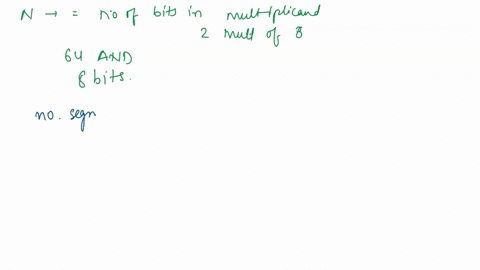 N → = no of bits in multiplicand
2 mult of 8
64 AND
8 bits.
no. segn